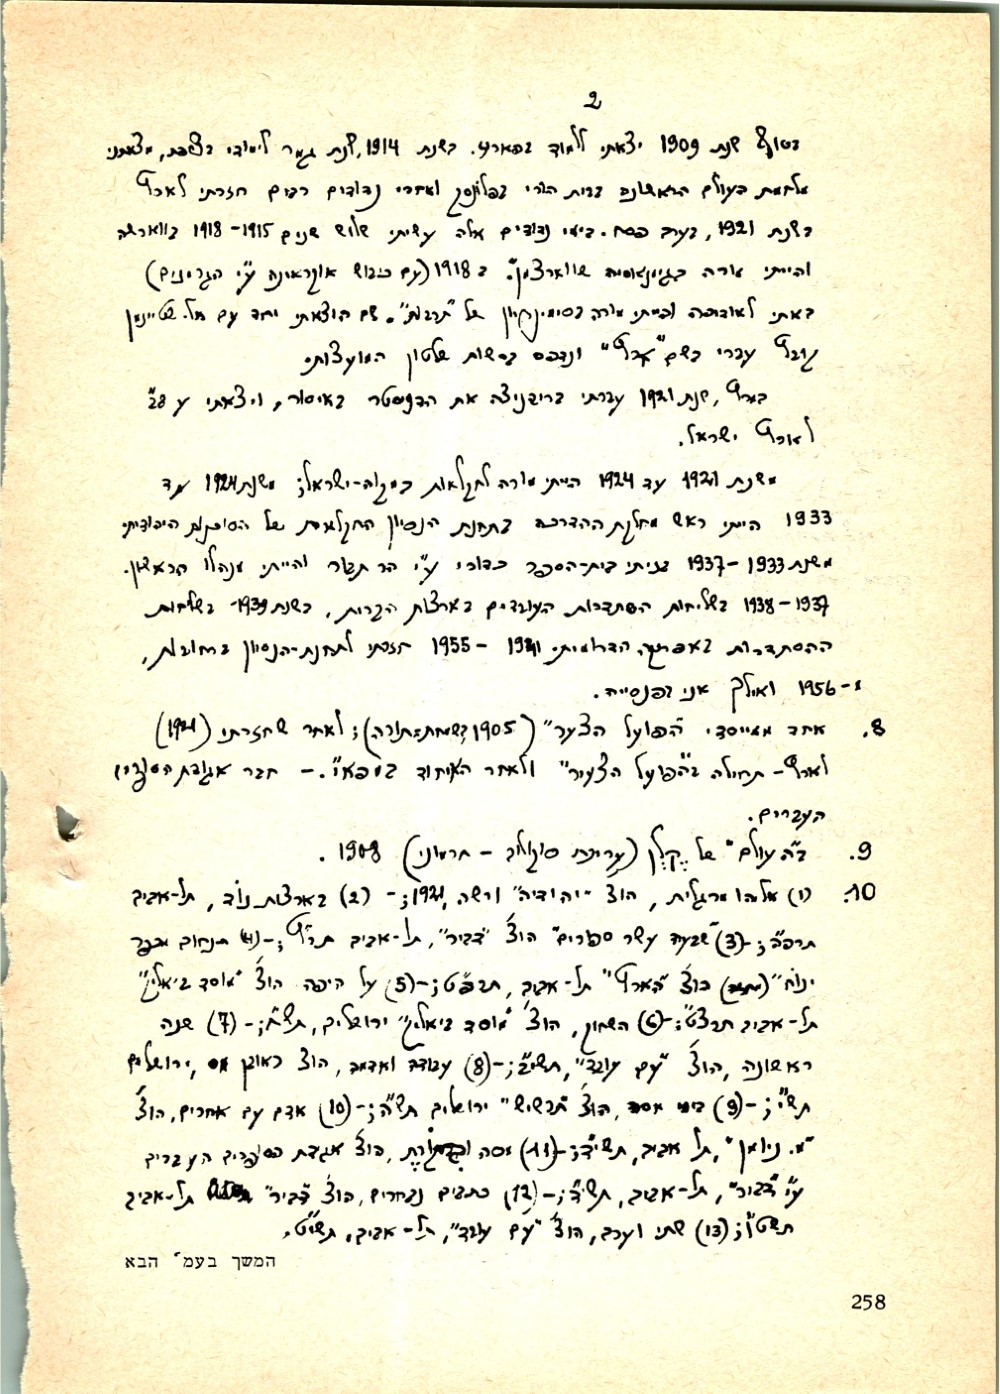 2
בסוף שנת 1909 יצאתי ללמוד בפאריז. בשנת 1914, שנת גמר לימודי בצרפת, מצאתני
מלחמת העולם הראשונה בבית הורי בפלונסק ואחרי נדודים רבים חזרתי לארץ
בשנת 1921, בערב פסח. בימי נדודים אלה עשיתי שלוש שנים 1915–1918 בווארשה
והייתי מורה בגימנאסיה שווארצמן. ב 1918 (עם כיבוש אוקראינה ע"י הגרמנים)
באתי לאודיסה והייתי מורה בסימינריון של "תרבות". שם הוצאתי יחד עם אל. שטיינמן
קובץ עברי בשם "ארץ" ונדפס ברשות שלטון המועצות.
במרץ, שנת 1921 עברתי בריבניצה את הדניסטר באיסור, ויצאתי
לארץ ישראל.
משנת 1921 עד 1924 הייתי מורה לחקלאות במקוה-ישראל; משנת 1924 עד
1933 הייתי ראש מחלקת ההדרכה בתחנת הנסיון החקלאית של הסוכנות היהודית;
משנת 1933–1937 בניתי בית-הספר כדורי ע"י הר תבור והייתי מנהלו הראשון.
1937–1938 בשליחות הסתדרות העובדים בארצות הברית, בשנת 1939 בשליחות
ההסתדרות באפריקה הדרומית. 1941 – 1955 חזרתי לתחנת-הנסיון ברחובות,
מ-1956 ואילך אני בפנסייה.
8. אחד ממייסדי "הפועל הצעיר" (1905 בשמחת-תורה); לאחר שחזרתי (1921)
לארץ – תחילה ב"הפועל הצעיר" ולאחר האיחוד במפא"י. – חבר אגודת הסופרים
העברים.
9. ב"העולם" של (עריכת סוקולוב – חרמוני) 1908.
10. (1) אליהו מרגלית, הוצ' "יהודיה" ורשה, 1921; – (2) בארצות נוד, תל-אביב
תרפ"ה; – (3) "שבעה עשר ספורים" הוצ' "דביר", תל-אביב תר"ץ; – (4)
ינוח" הוצ' "הארץ" תל-אביב, תרפ"ט; – (5) על היפה הוצ' "מוסד ביאליק"
תל-אביב תרצ"ט; – (6) השחור, הוצ' "מוסד ביאליק" ירושלים, תש"ח; – (7) שנה
ראשונה, הוצ' "עם עובד", תשי"ב; – (8) עבודה ואדמה, הוצ' ראובן מס, ירושלים
תש"י; – (9) בימי מסה, הוצ' "תרשיש" ירושלים תש"ה; – (10) אדם עם אחרים, הוצ'
"מ. ניומן", תל אביב, תשי"ד; – (11) מסה ובקורת, הוצ' אגודת הסופרים העברים
ע"י "דביר", תל-אביב, תשי"ד; – (12) כתבים נבחרים, הוצ' "דביר" תל-אביב
תשט"ו; (13) שתי וערב, הוצ' "עם עובד", תל-אביב, תשי"ט.
המשך בעמ' הבא
258